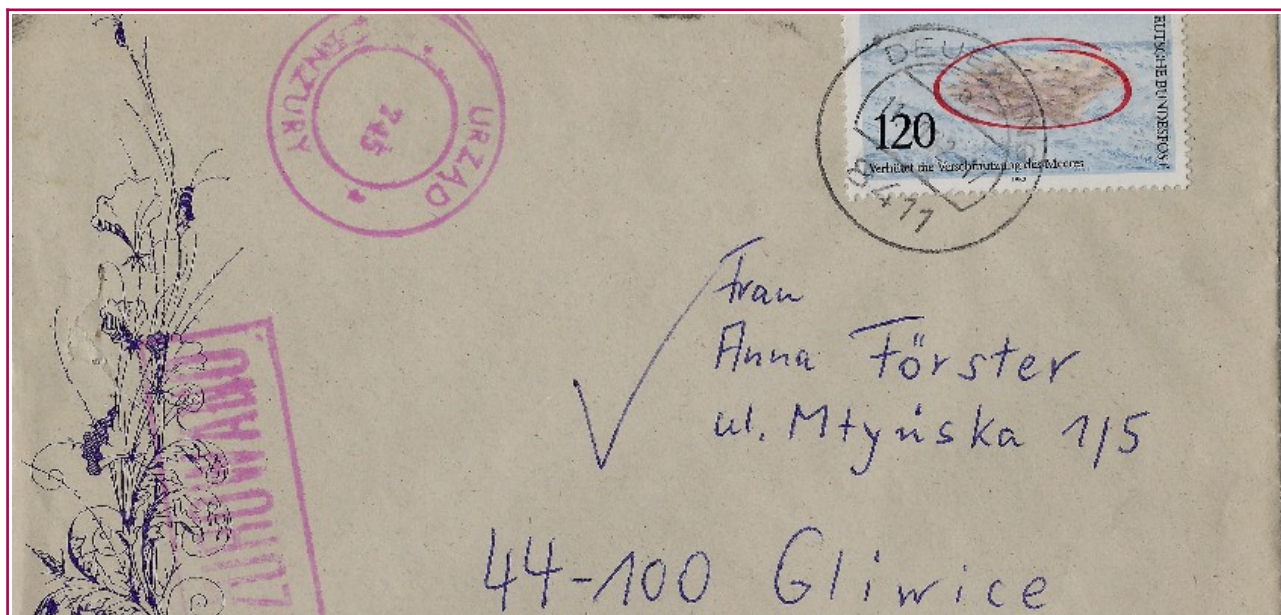 URZĄD
CENZURY
745
DEUTSCHE BUNDESPOST
120
Verhütet die Verschmutzung des Meeres
8411
Frau
Anna Förster
ul. Młyńska 1/5
44-100 Gliwice